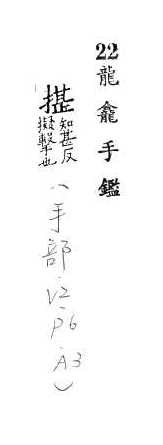 22龍龕手鑑
揕知甚反
擬擊也
(手部.V2.P6.A3)